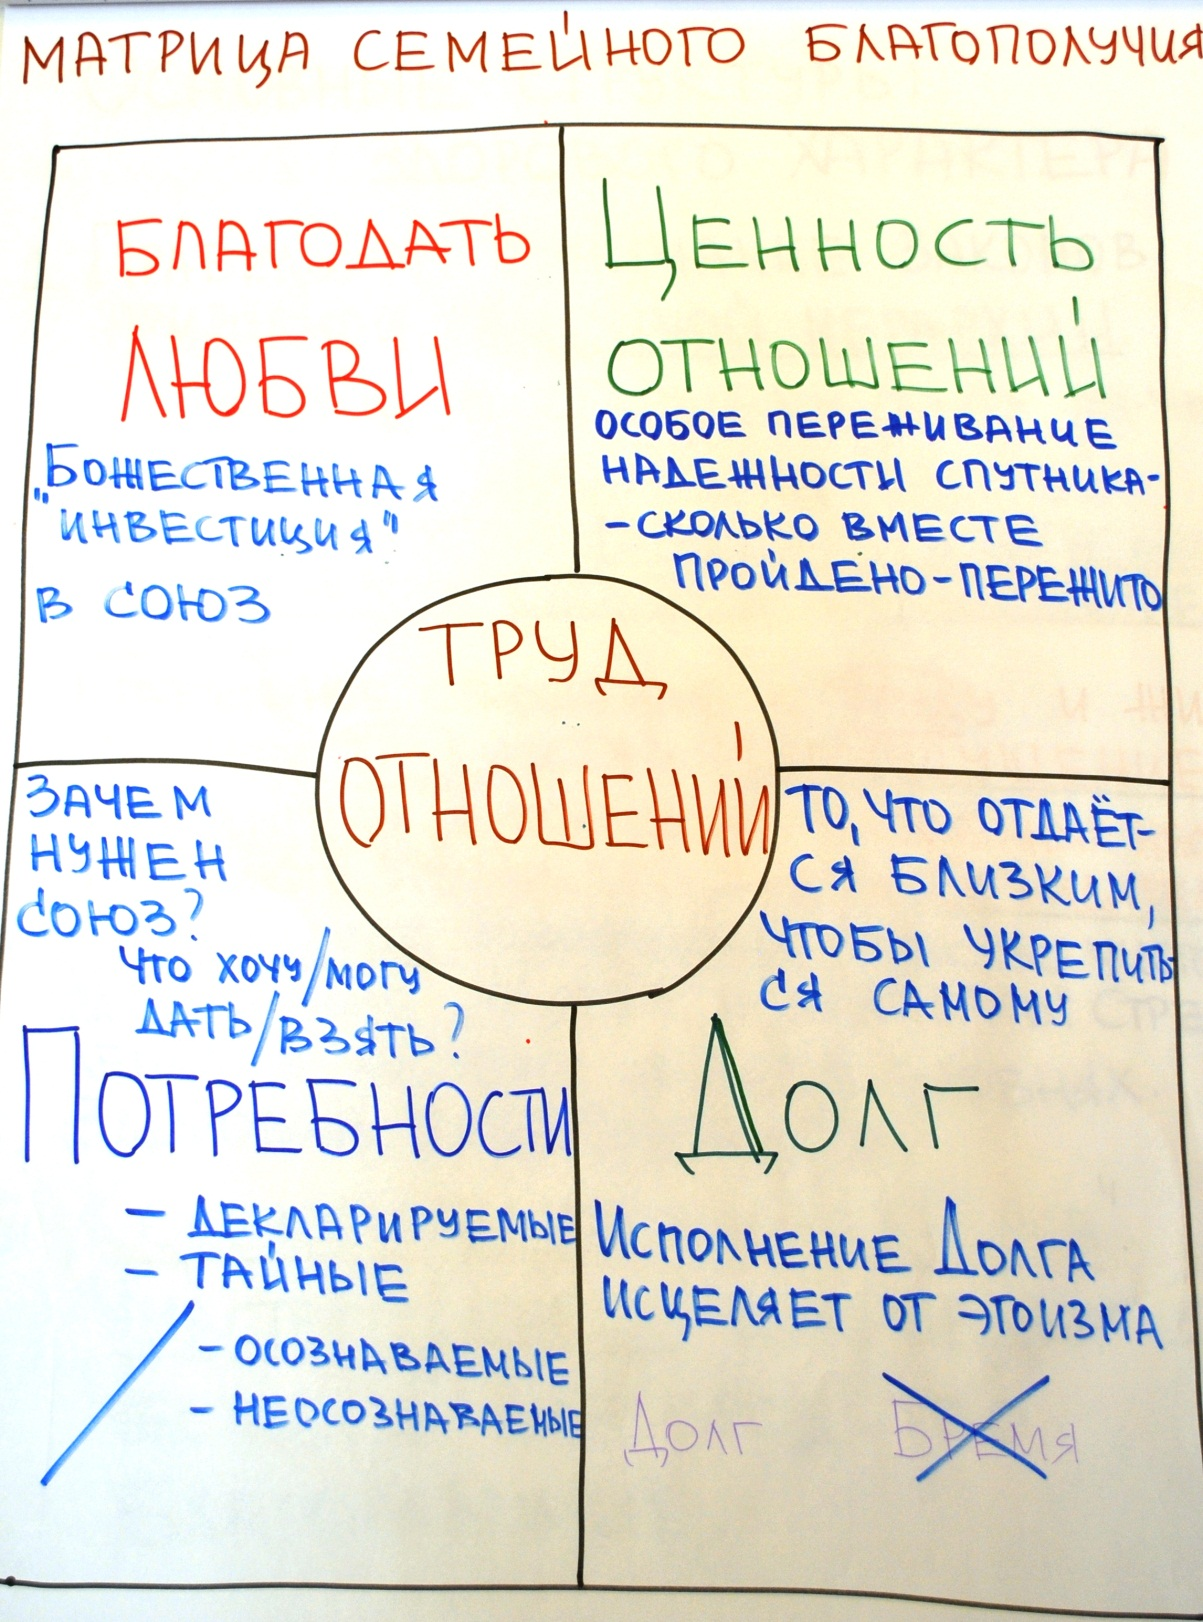 МАТРИЦА СЕМЕЙНОГО БЛАГОПОЛУЧИЯ
БЛАГОДАТЬ
ЛЮБВИ
„БОЖЕСТВЕННАЯ
ИНВЕСТИЦИЯ"
В СОЮЗ
ЦЕННОСТЬ
ОТНОШЕНИЙ
ОСОБОЕ ПЕРЕЖИВАНИЕ
НАДЕЖНОСТИ СПУТНИКА-
-СКОЛЬКО ВМЕСТЕ
ПРОЙДЕНО-ПЕРЕЖИТО
ТРУД
ОТНОШЕНИЙ
ЗАЧЕМ
НУЖЕН
СОЮЗ?
ЧТО ХОЧУ/МОГУ
ДАТЬ/ВЗЯТЬ?
ПОТРЕБНОСТИ
- ДЕКЛАРИРУЕМЫЕ
- ТАЙНЫЕ
- ОСОЗНАВАЕМЫЕ
- НЕОСОЗНАВАЕМЫЕ
ТО, ЧТО ОТДАЁТ-
СЯ БЛИЗКИМ,
ЧТОБЫ УКРЕПИТЬ
СЯ САМОМУ
ДОЛГ
ИСПОЛНЕНИЕ ДОЛГА
ИСЦЕЛЯЕТ ОТ ЭГОИЗМА
ДОЛГ БРЕМЯ